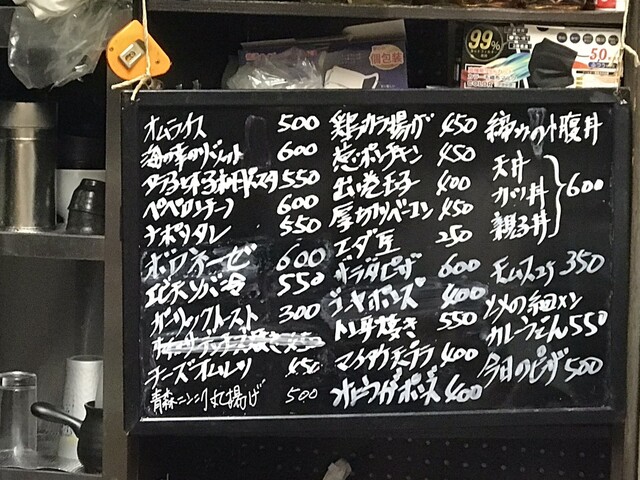 個包装
99%
オムライス 500
海の幸のリゾット 600
タラコと木の子和風パスタ 550
ペペロンチーノ 600
ナポリタン 550
ボロネーゼ 600
エビ天ソバ 550
ガーリックトースト 300
チーズオムレツ 450
青森ニンニク丸揚げ 500
鶏カラ揚げ 450
ポンチキン 450
出し巻玉子 400
厚切りベーコン 450
エダ豆 250
サラダピザ 600
ゴーヤポンズ 400
トン平焼き 550
マイタケ天プラ 400
オニウガポンズ 400
締めの小腹丼
天丼
カツ丼
親子丼
600
モムスユ 350
ソメの細メン
カレーうどん 550
今日のピザ 500